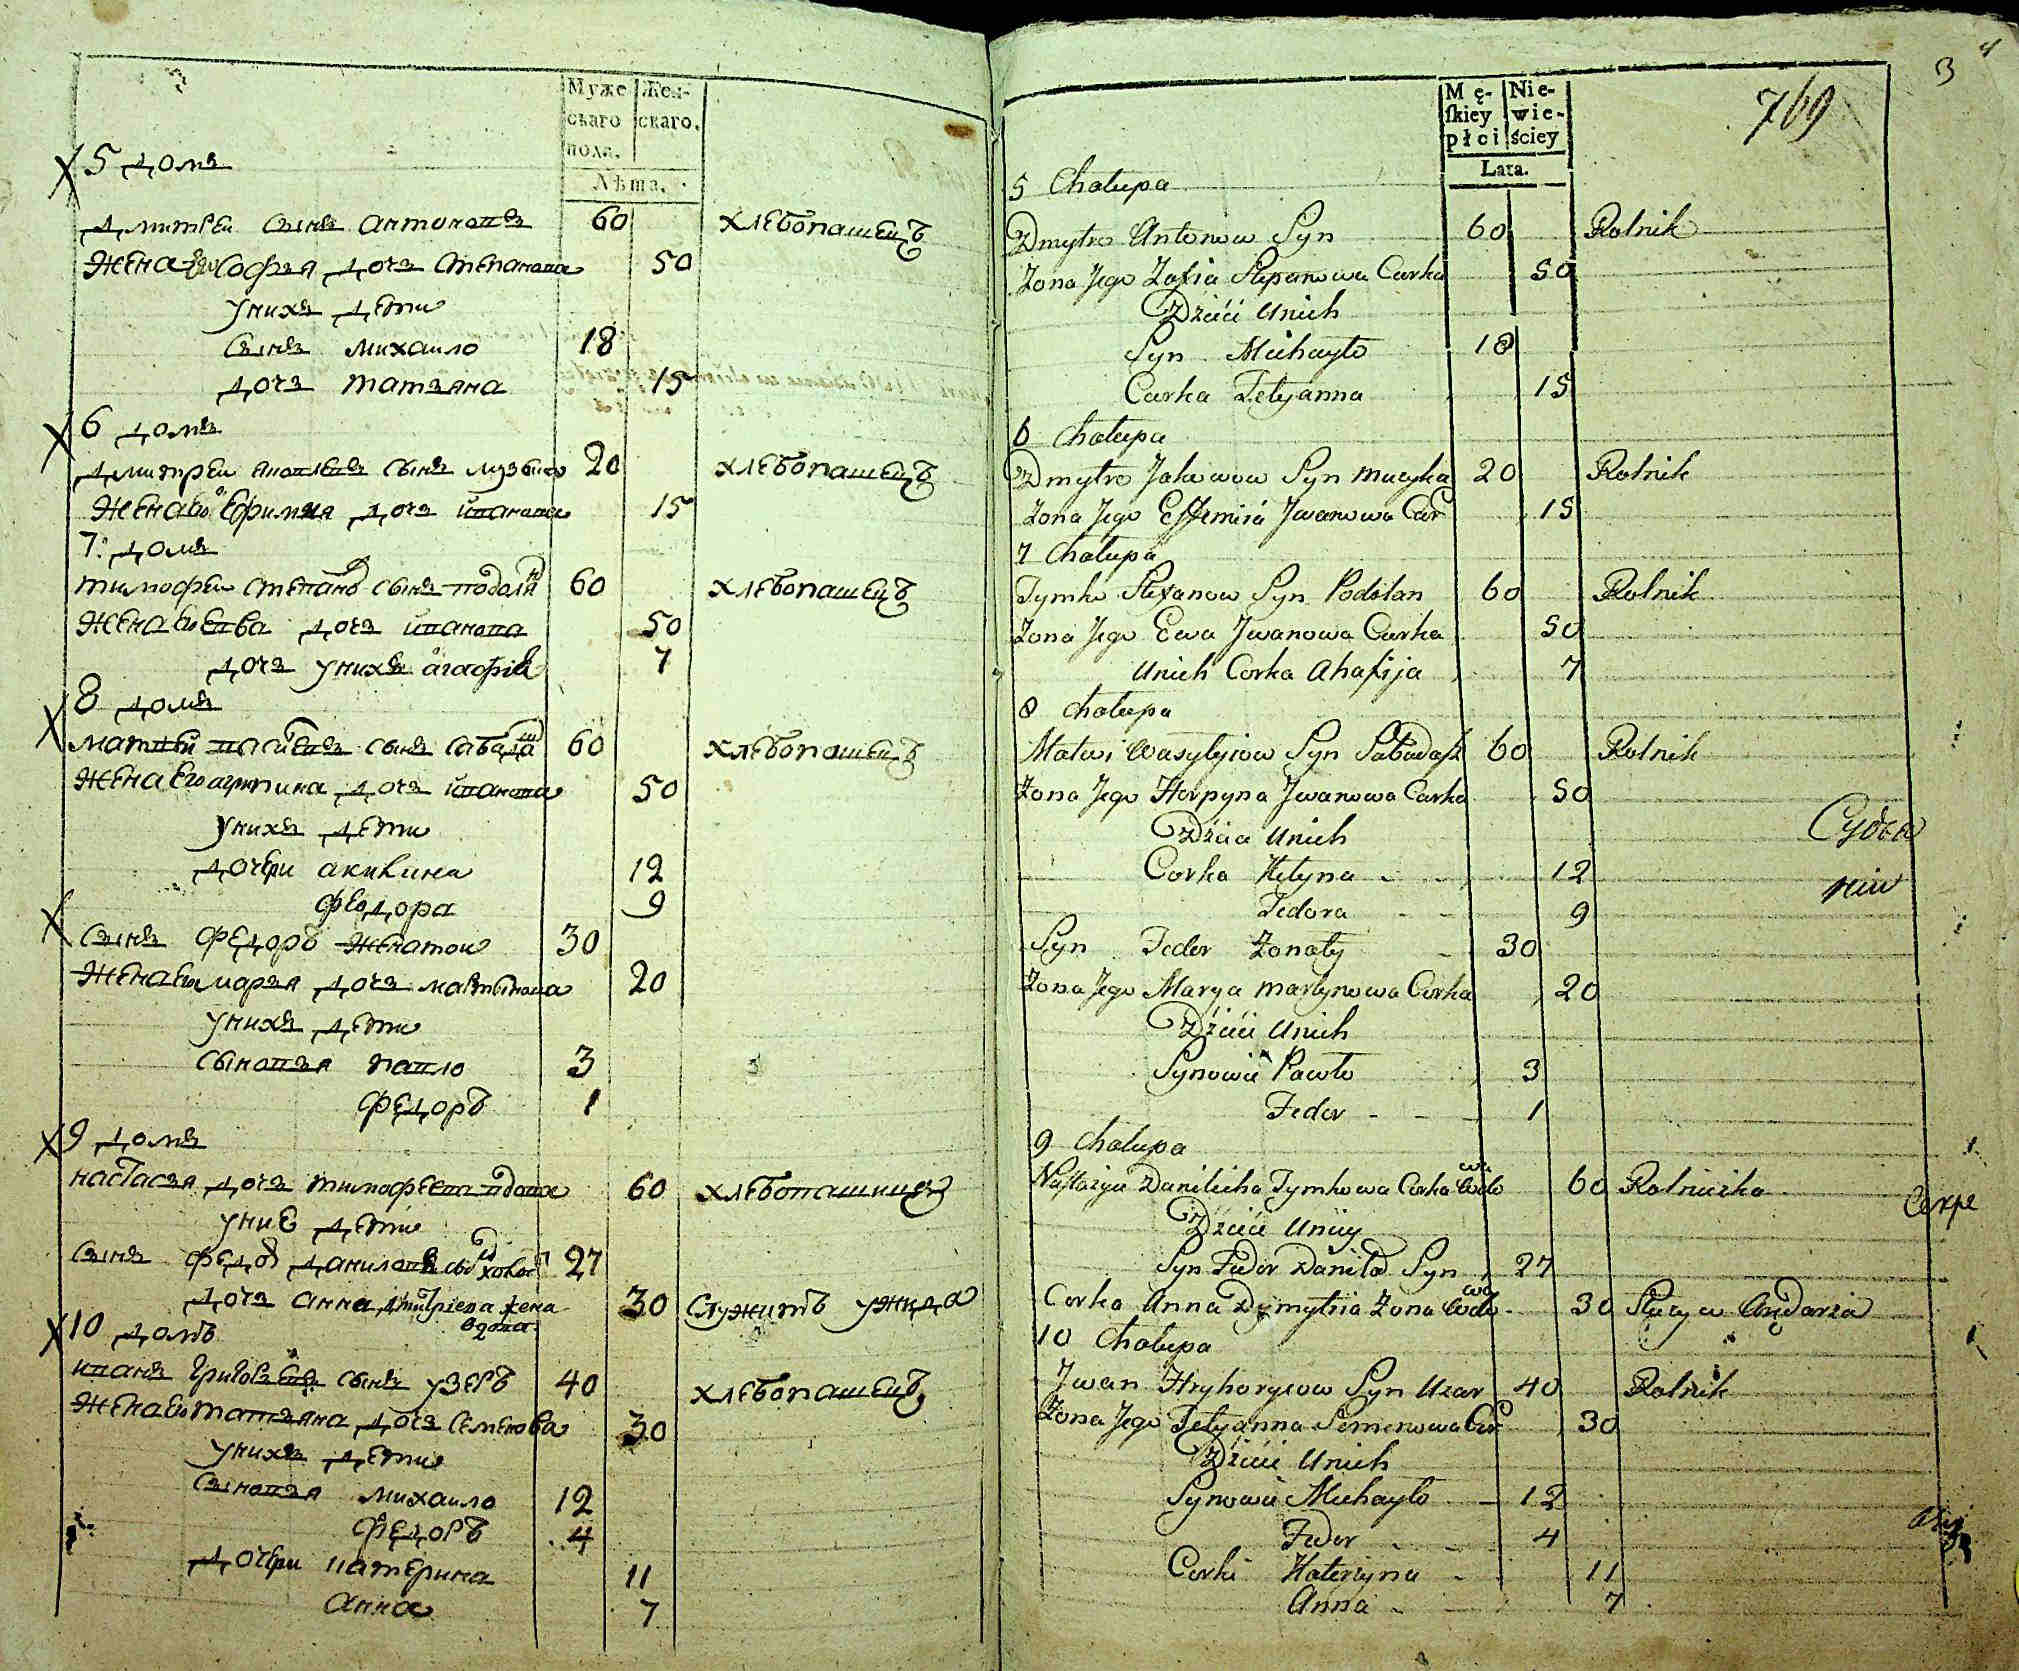 Муже
скаго
пола.
Жен-
скаго.
Лѣта.
5 домъ
Дмитреи сынъ Антоновъ 60 хлебопашецъ
жена ево Софья дочь Степанова 50
у нихъ дети
сынъ михаило 18
дочь татьяна 15
6 домъ
Дмитреи яковлевъ сынъ музыка 20 хлебопашецъ
жена ево Ефимия дочь иванова 15
7: домъ
тимофеи степановъ сынъ подолян 60 хлебопашецъ
жена ево Евва дочь иванова 50
дочь у нихъ агафия 7
8 домъ
матвеи васильевъ сынъ сабадаш 60 хлебопашецъ
жена Его агрипина дочь иванова 50
у нихъ дети
дочери акилина 12
феодора 9
сынъ федоръ женатои 30
жена ево марья дочь мартынова 20
у нихъ дети
сыновья павло 3
федоръ 1
9 домъ
настасья дочь тимофеева вдова 60 хлебопашница
у ние дети
сынъ федор даниловъ сын холост 27
дочь анна дмитріева жена 30 Служитъ у жида
вдова
10 домъ
иванъ григорьевъ сынъ узеръ 40 хлебопашецъ
жена ево татьяна дочь семенова 30
у нихъ дети
сыновья михаило 12
федоръ 4
дочери катерина 11
анна 7
3
4
769
Mę-
skiey
płci
Nie-
wie-
ściey
Lata.
5 Chalupa
Dmytro Antonow Syn 60 Rolnik
Zona Jego Zofia Stepanowa Curka 50
Dzieci Unich
Syn Michayło 18
Curka Tetyanna 15
6 Chalupa
Dmytro Jakowow Syn Muzyka 20 Rolnik
Zona Jego Effemiia Jwanowa Cur 15
7 Chalupa
Tymko Stefanow Syn Podolan 60 Rolnik
Zona Jego Ewa Jwanowa Curka 50
Unich Corka Ahafija 7
8 Chalupa
Matwi Wasylyiow Syn Sabadasz 60 Rolnik
Zona Jego Horpyna Jwanowa Curka 50
Dzieci Unich
Corka Kilyna 12
Fedora 9
Syn Fedor Zonaty 30
Zona Jego Marya Martynowa Corka 20
Dzieci Unich
Synowie Pawło 3
Fedor 1
9 Chalupa
Nastazya Danilicha Tymkowa Corka Wdowa 60 Rolniczka
Dzieci Uniiy
Syn Fedor Daniło Syn 27
Corka Anna Dymytriia Zona Wdowa 30 Służy u Arędarza
10 Chalupa
Jwan Hryhoryiow Syn Uzar 40 Rolnik
Zona Jego Tetyanna Semenowa Cor 30
Dzieci Unich
Synowie Michayło 12
Fedor 4
Corki Katerzyna 11
Anna 7